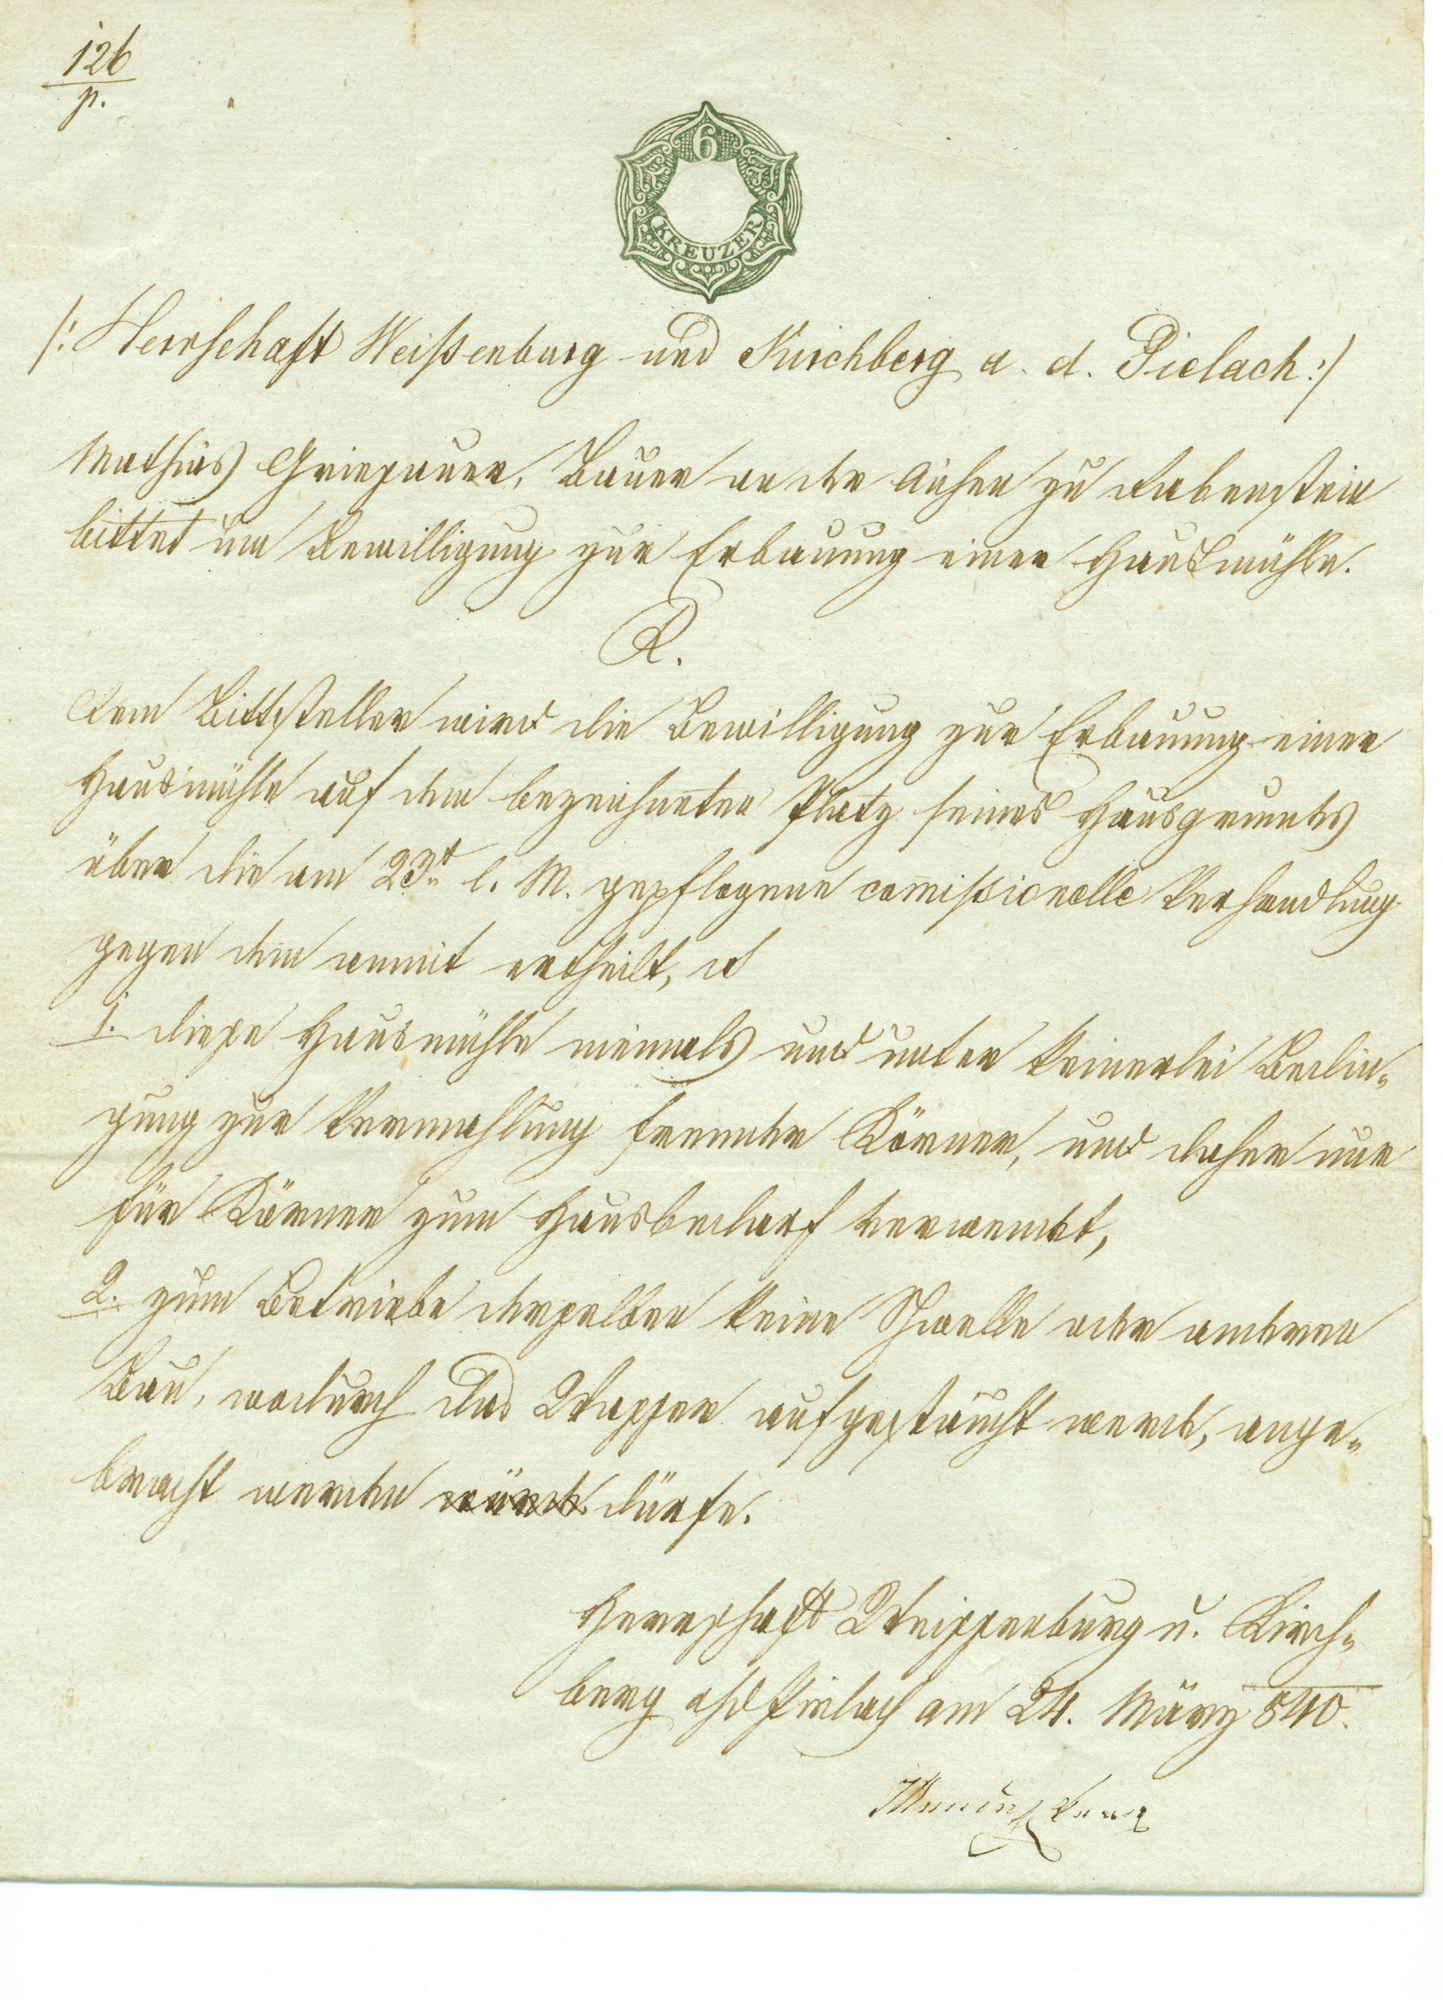 126
p.
6
KREUZER
/: Herrschaft Weißenburg und Kirchberg a. d. Pielach :/
Mathias Griesauer, Bauer an der Aichen zu Rabenstein
bittet um Bewilligung zur Erbauung einer Hausmühle.
R.
Dem Bittsteller wird die Bewilligung zur Erbauung einer
Hausmühle auf dem bezeichneten Platz seines Hausgrundes
über die am 23t. l. M. gepflogene commissionelle Verhandlung
gegen dem anmit ertheilt, daß
1. diese Hausmühle niemals und unter keinerlei Bedin„
gung zur Vermahlung fremder Körner, und daher nur
für Körner zum Hausbedarf verwendet,
2. zum Betriebe derselben keine Schwelle oder anderer
Bau, wodurch das Wasser aufgestaucht werde, ange„
bracht werden dürfe.
Herrschaft Weissenburg u. Kirch„
berg a/d Pielach am 24. März 840.